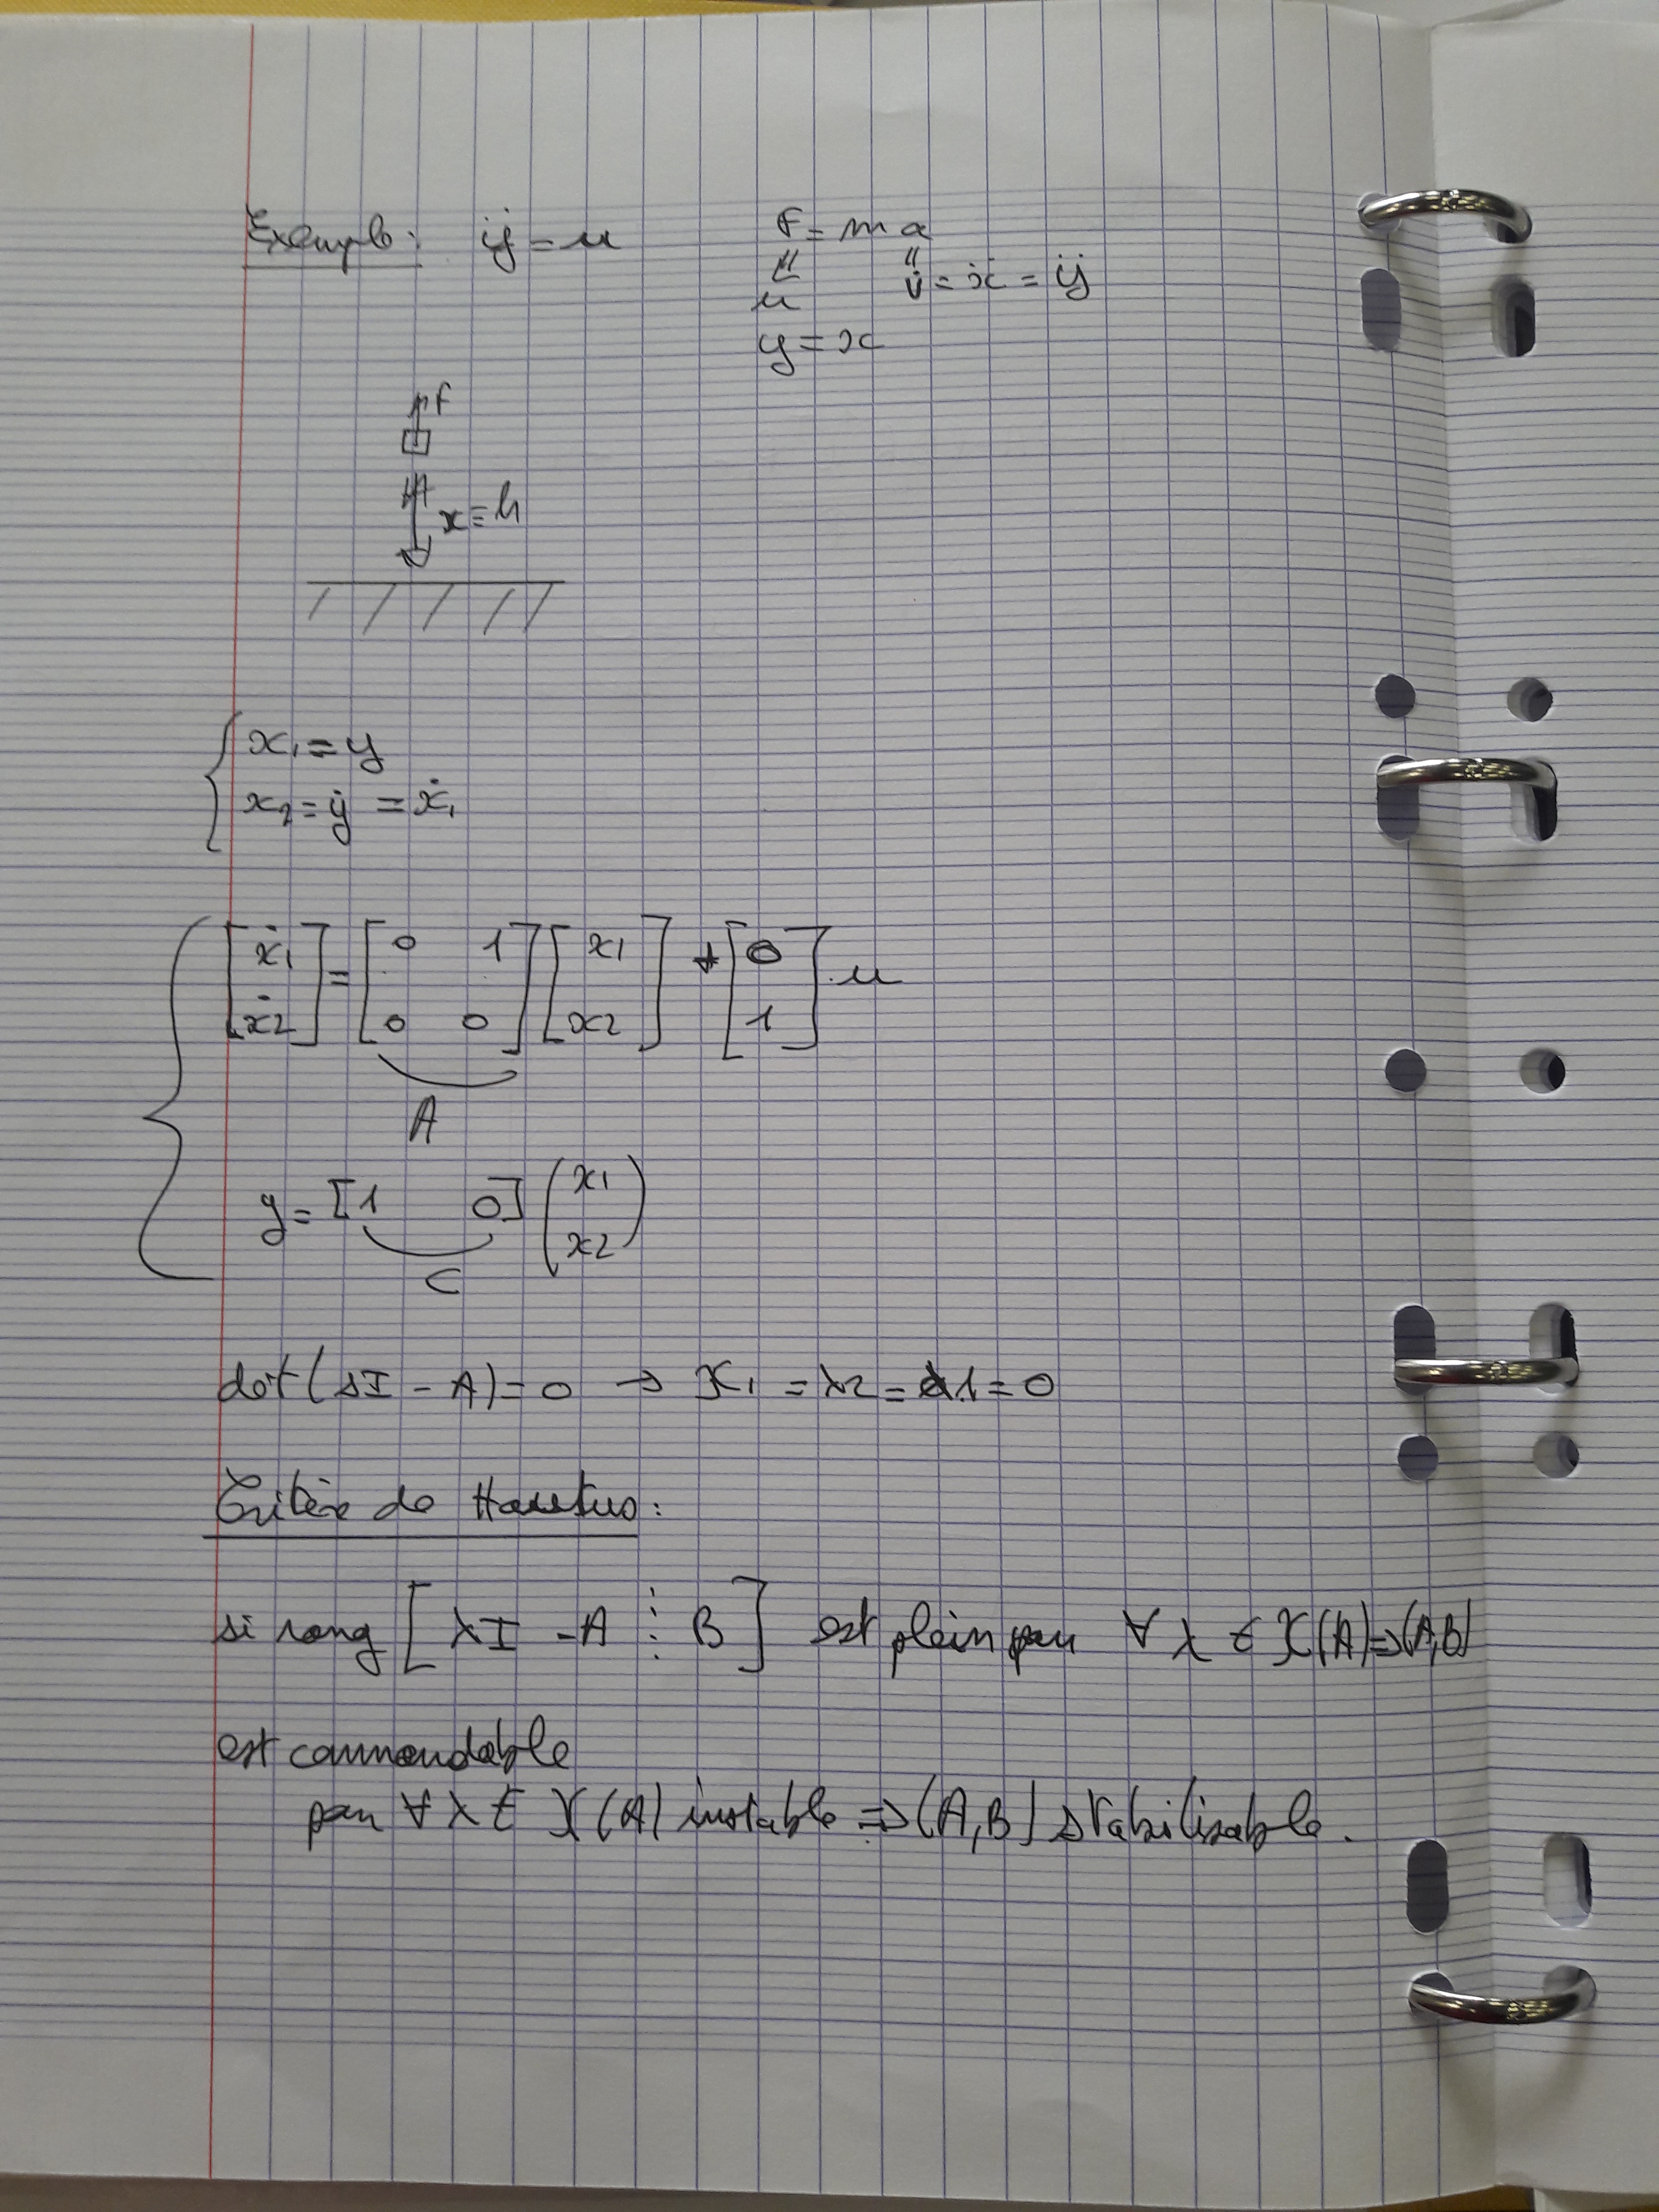 Exemple : ÿ = u
F = m a
= =
u v̇ = ẍ = ÿ
y = x
F
x = h
x₁ = y
x₂ = ẏ = ẋ₁
[ẋ₁ ; ẋ₂] = [0 1 ; 0 0] [x₁ ; x₂] + [0 ; 1] u
A
y = [1 0] (x₁ ; x₂)
C
det(sI - A) = 0 → λ₁ = λ₂ = = 0
Critère de Hautus :
si rang [λI - A ⋮ B] est plein pour ∀ λ ∈ λ(A) ⇒ (A,B)
est commandable
pour ∀ λ ∈ λ(A) instable ⇒ (A,B) stabilisable.